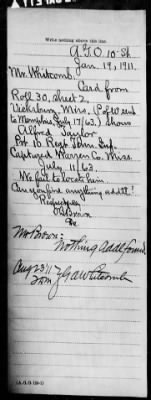 Write nothing above this line
A.G.O. 10-St
Jan. 19, 1911.
Mr. Whitcomb.
Card from
Roll 30, sheet 2,
Vicksburg, Miss. (P of W sent
to Memphis July 17/63.) shows
Alfred Taylor
Pvt 10 Regt Tenn. Inf.
Captured Warren Co. Miss.
July 11/63.
We fail to locate him.
Can you find anything addtl?
Respectfully
Brown
Mr Brown:
Nothing Addl found.
Whitcomb